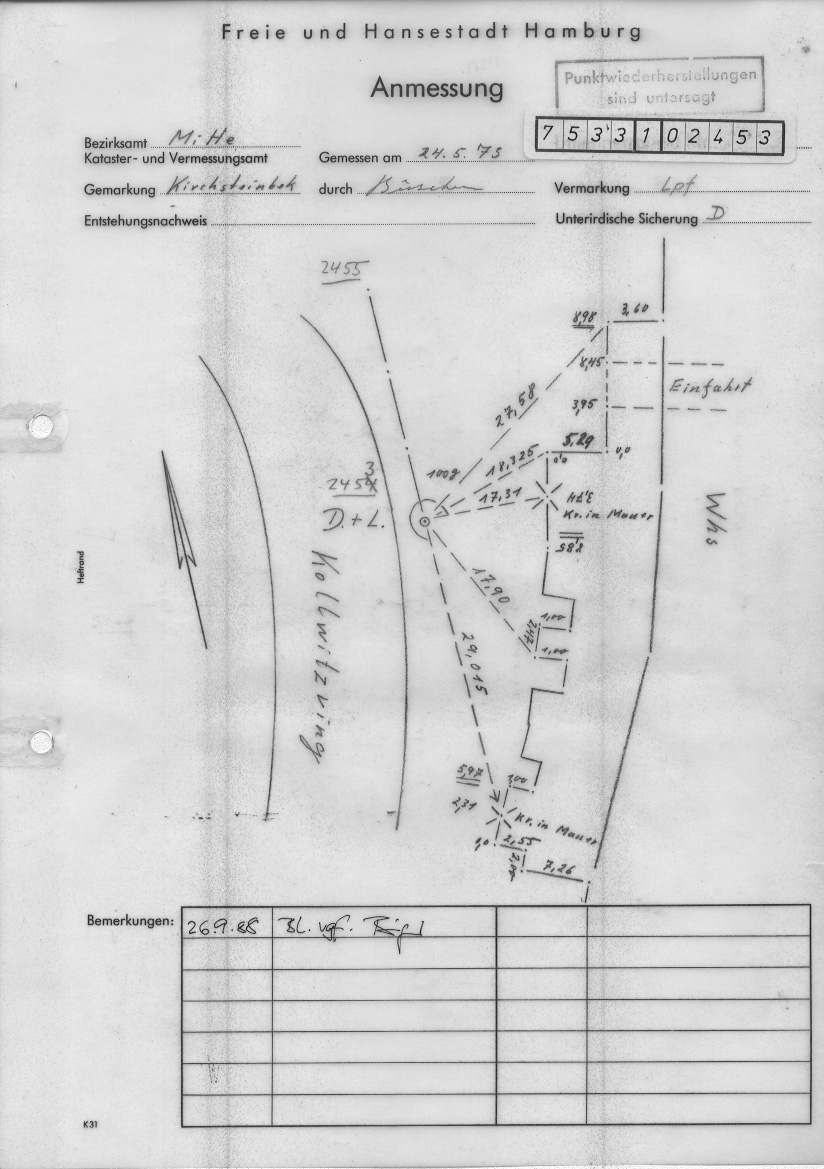 Freie und Hansestadt Hamburg
Anmessung
Punktwiederherstellungen
sind untersagt
7533102453
Bezirksamt Mitte
Kataster- und Vermessungsamt
Gemessen am 24.5.73
Gemarkung Kirchsteinbek
durch
Vermarkung Lpf
Entstehungsnachweis
Unterirdische Sicherung D
2455
8,98
3,60
8,45
Einfahrt
27,58
3,95
5,29
0,0
0,0
100g
18,325
3
2454
17,31
Kr. in Mauer
D.+L.
Whs
8,85
Heftrand
Kollwitzring
17,90
1,00
2,47
1,00
29,015
5,97
1,00
2,31
Kr. in Mauer
0,0
2,55
2,00
7,26
Bemerkungen:
26.9.88
BL. vgf.
K31